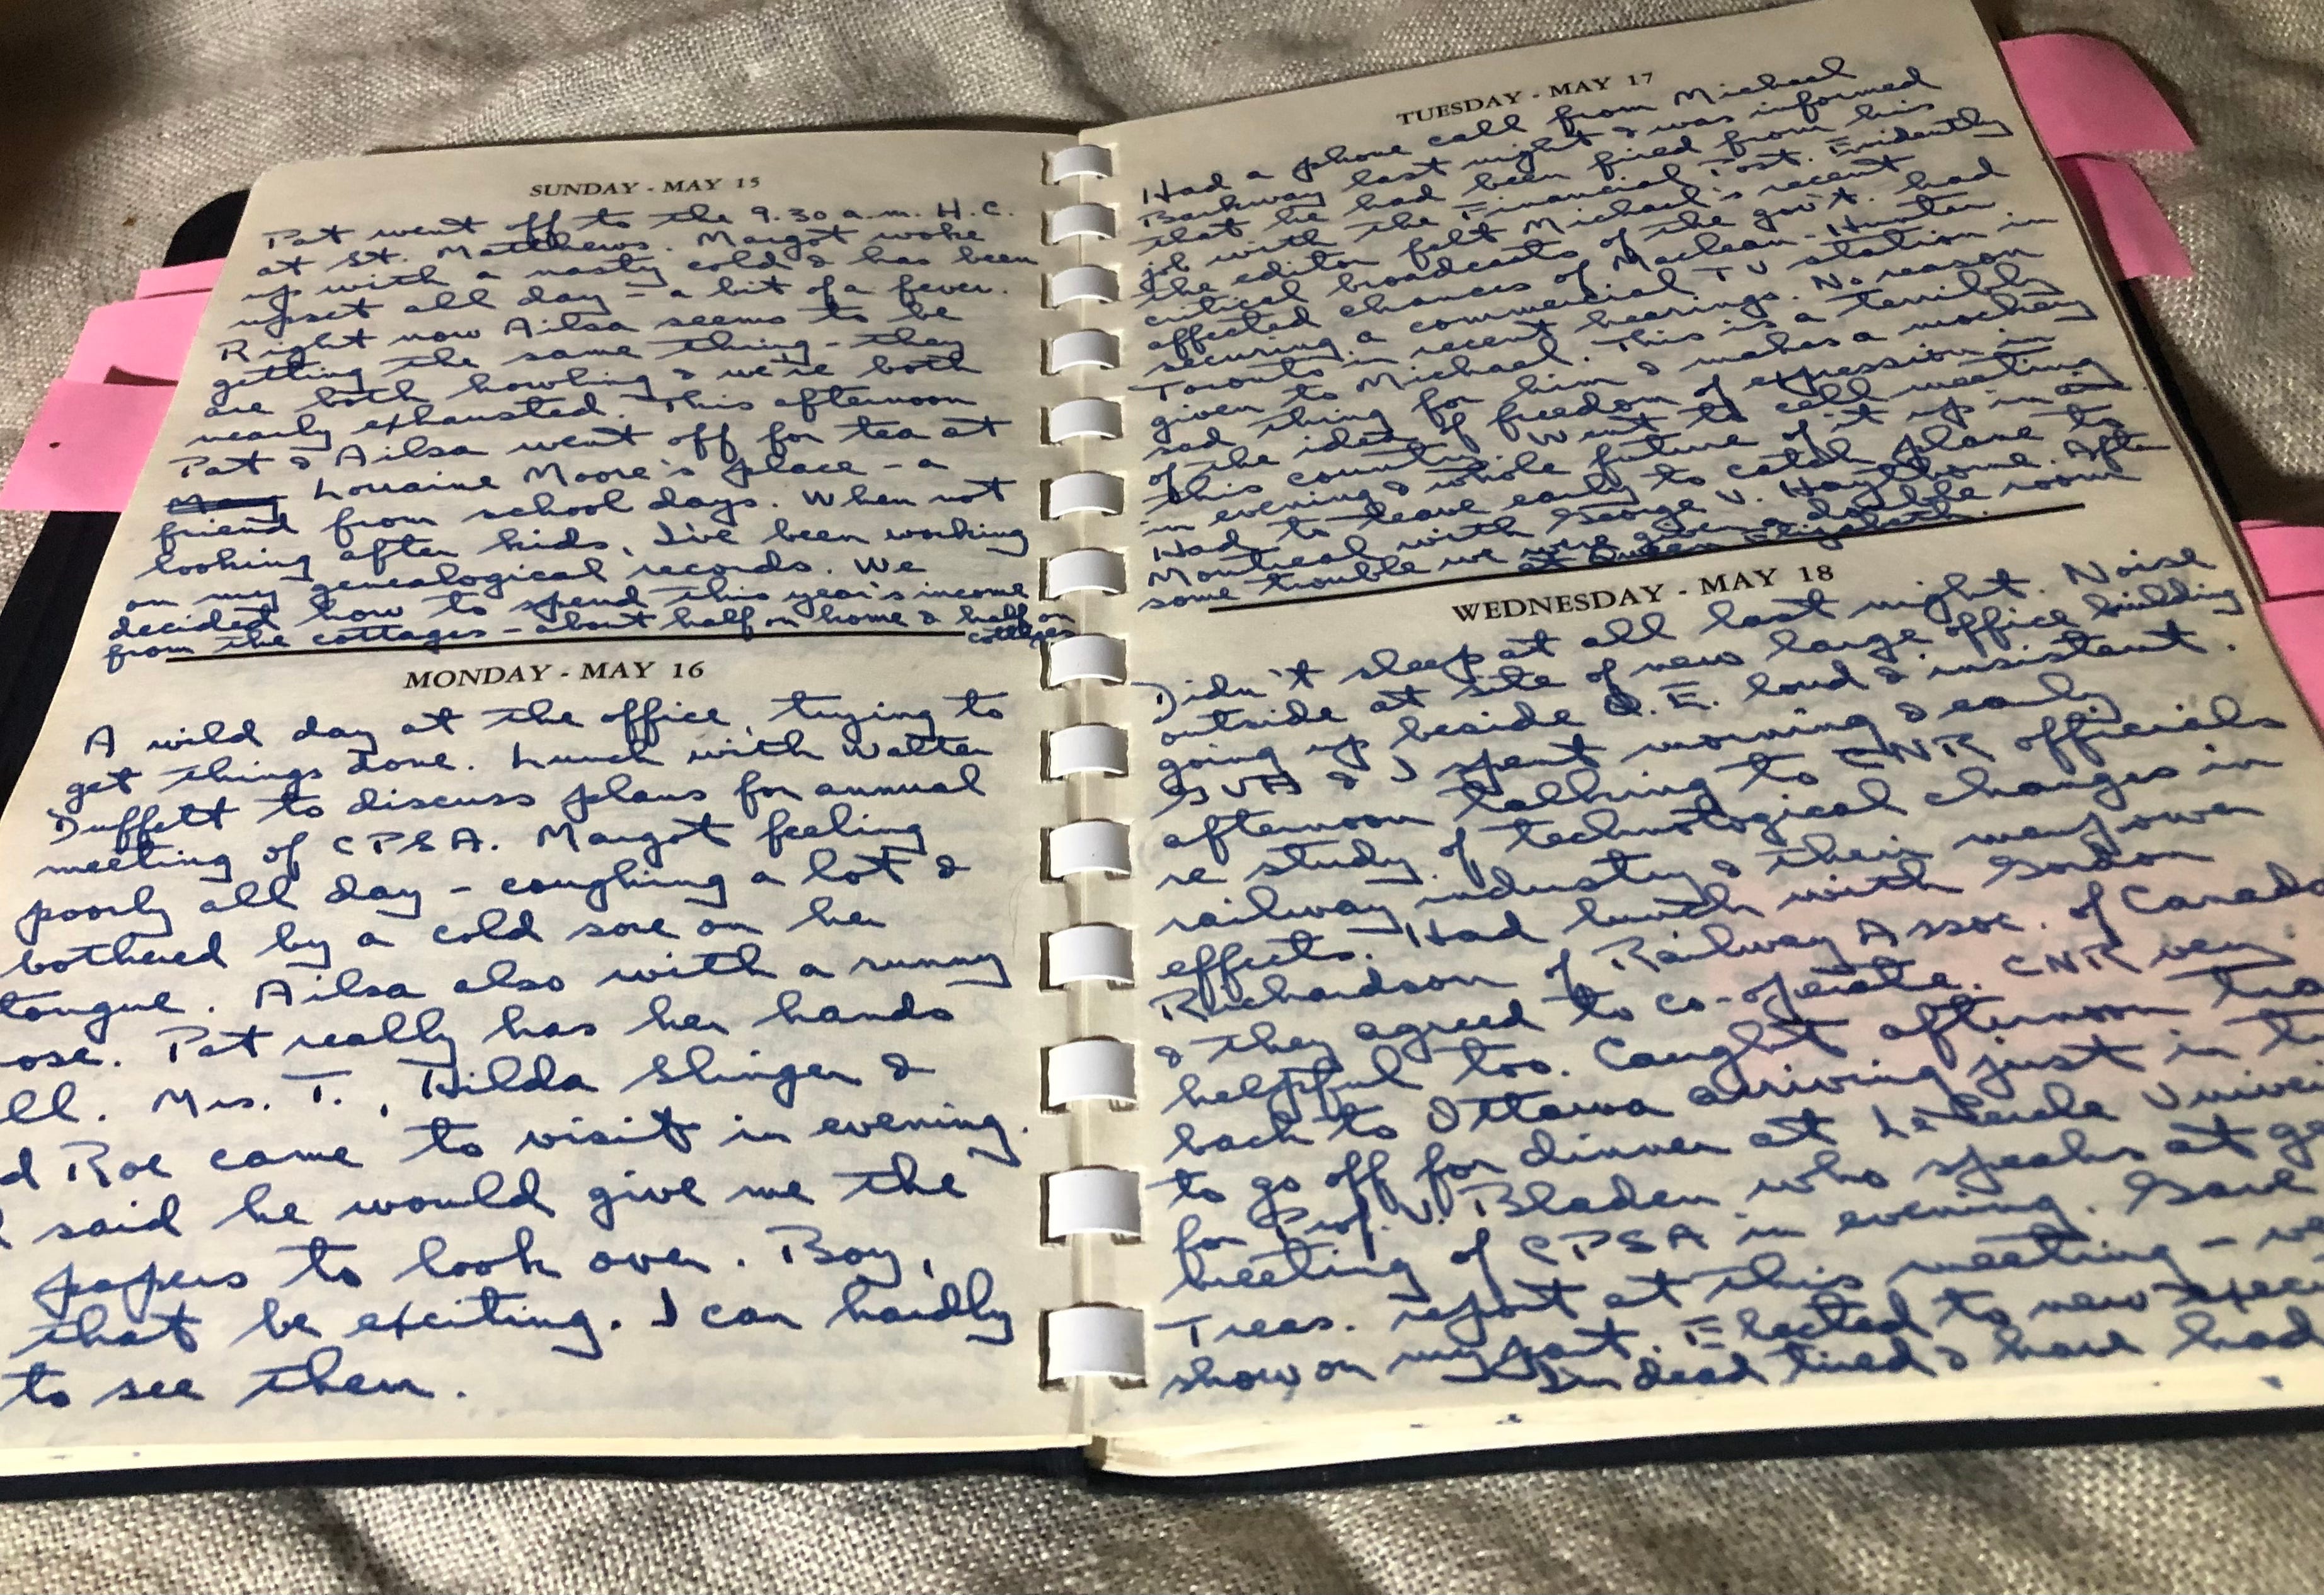 SUNDAY - MAY 15
Pat went off to the 9.30 a.m. H.C.
at St. Matthews. Margot woke
up with a nasty cold & has been
upset all day - a bit of a fever.
Right now Ailsa seems to be
getting the same thing - they
are both howling & we're both
nearly exhausted. This afternoon
Pat & Ailsa went off for tea at
Lorraine Moore's place - a
friend from school days. When not
looking after kids, I've been working
on my genealogical records. We
decided how to spend this year's income
from the cottages - about half on home & half on
cottages
MONDAY - MAY 16
A wild day at the office, trying to
get things done. Lunch with Walter
Duffett to discuss plans for annual
meeting of CPSA. Margot feeling
poorly all day - coughing a lot &
bothered by a cold sore on her
tongue. Ailsa also with a runny
ose. Pat really has her hands
ll. Mrs. T., Hilda Slinger &
d Roe came to visit in evening.
said he would give me the
papers to look over. Boy,
that be exciting. I can hardly
to see them.
TUESDAY - MAY 17
Had a phone call from Michael
Barkway last night & was informed
that he had been fired from his
job with the Financial Post. Evidently
the editor felt Michael's recent
critical broadcasts of the gov't. had
affected chances of Maclean-Hunter
securing a commercial TV station in
Toronto in recent hearings. No reason
given to Michael. This is a terribly
sad thing for him & makes a mockery
of the idea of freedom of expression in
this country. Went to cell meeting
in evening & whole future of it up in air.
Had to leave early to catch plane to
Montreal with George V. Haythorne. After
some trouble we were given a double room
at Queen Elizabeth.
WEDNESDAY - MAY 18
Didn't sleep at all last night. Noise
outside at site of new large office building
going up beside Q.E. loud & insistent.
GVH & I spent morning & early
afternoon talking to CNR officials
re study of technological changes in
railway industry & their manpower
effects. Had lunch with Gordon
Richardson of Railway Assoc. of Canada
& they agreed to co-operate. CNR very
helpful too. Caught afternoon tra
back to Ottawa arriving just in t
to go off for dinner at Le Cercle Univer
for Prof. V. Bladen who speaks at ge
meeting of CPSA in evening. Gave
Treas. report at this meeting - 
show on my part. Elected to new exec
I'm dead tired & have had